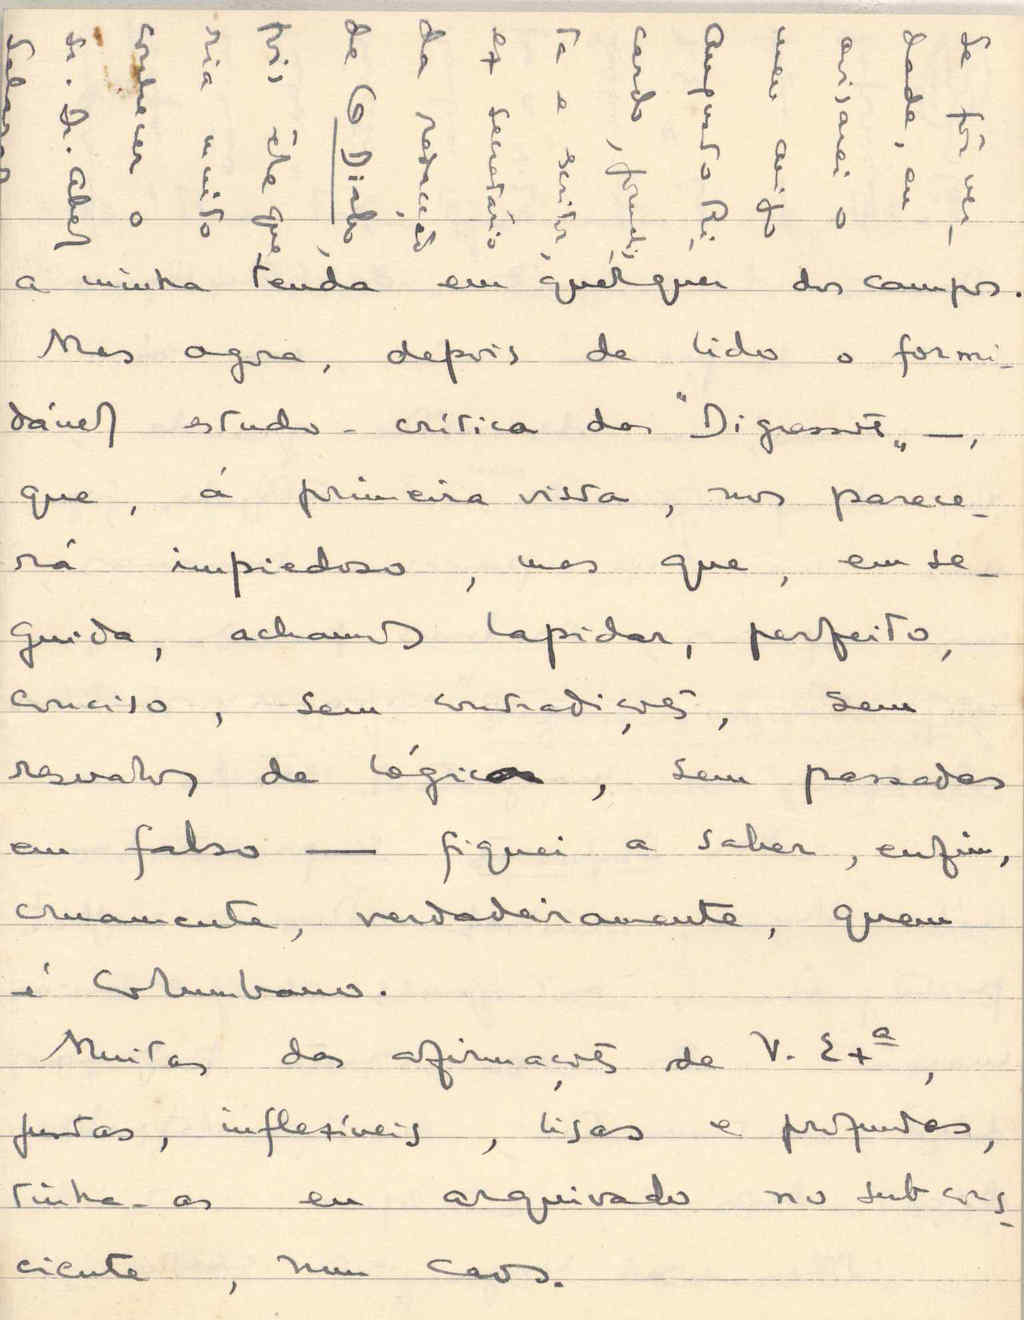 Se fôr ver-
dade, eu
avisarei o
meu amigo
Augusto Ri-
cardo, jornalis-
ta e escritor,
ex secretário
da redacção
de O Diabo,
pois êle que-
ria muito
conhecer o
Sr. Dr. Abel
Salazar
a minha tenda em quelquer dos campos.
Mas agora, depois de lido o formi-
dável estudo-crítica das "Digressões„ —,
que, á primeira vista, nos parece-
rá impiedoso, mas que, em se-
guida, achamos lapidar, perfeito,
conciso, sem contradições, sem
resvalos de lógica, sem passadas
em falso — fiquei a saber, enfim,
cruamente, verdadeiramente, quem
é Columbano.
Muitas das afirmações de V. Exª,
justas, inflexíveis, lisas e profundas,
tinha-as eu arquivado no subcons-
ciente, num caos.